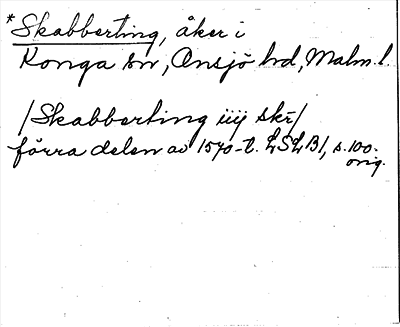 *Skabberting, åker i
Konga sn, Onsjö hd, Malm. l.
/Skabberting iiij skr/
förra delen av 1570-t. LSLB1, s. 100.
orig.